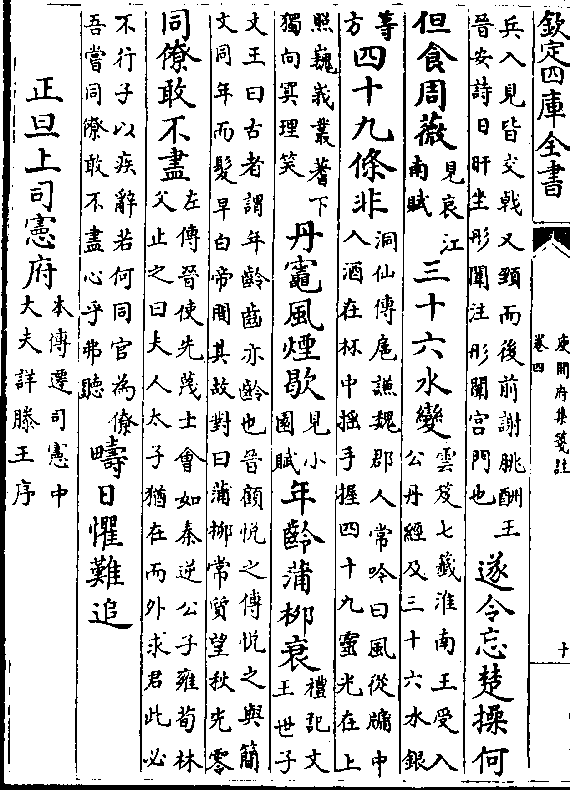 欽定四庫全書
庾開府集箋註
卷四
十
兵入見皆交戟叉頸而後前謝朓酬王
晉安詩日旰坐彤闈注彤闈宮門也
遂令忘楚操何
但食周薇
見哀江
南賦
三十六水變
雲笈七籤淮南王受八
公丹經及三十六水銀
等
方
四十九條非
洞仙傳扈謙魏郡人常吟曰風從牖中
入酒在杯中搖手握四十九靈光在上
照巍峩叢蓍下
獨向冥理笑
丹竈風煙歇
見小
園賦
年齡蒲柳衰
禮記文
王世子
文王曰古者謂年齡齒亦齡也晉顧悅之傳悅之與簡
文同年而髮早白帝問其故對曰蒲柳常質望秋先零
同僚敢不盡
左傳晉使先蔑士會如秦逆公子雍荀林
父止之曰夫人太子猶在而外求君此必
不行子以疾辭若何同官為僚
吾嘗同僚敢不盡心乎弗聽
疇日懼難追
正旦上司憲府
本傳遷司憲中
大夫詳滕王序